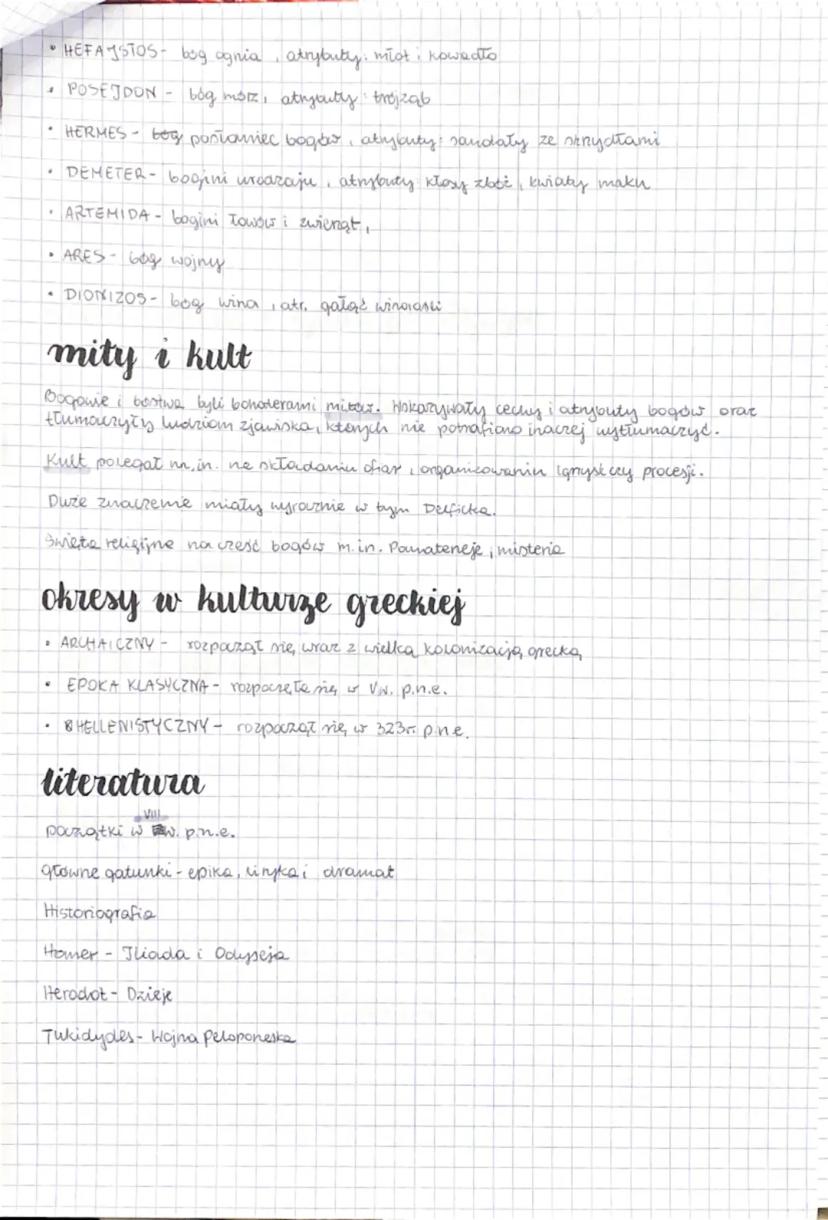 • HEFAJSTOS - bóg ognia, atrybuty: młot i kowadło
• POSEJDON - bóg mórz, atrybuty: trójząb
• HERMES - bóg posłaniec bogów, atrybuty: sandały ze skrzydłami
• DEMETER - bogini urodzaju, atrybuty kłosy zbóż, kwiaty maku
• ARTEMIDA - bogini łowów i zwierząt,
• ARES - bóg wojny
• DIONIZOS - bóg wina, atr. gałąź winorośli
mity i kult
Bogowie i bóstwa byli bohaterami mitów. Wskazywały cechy i atrybuty bogów oraz
tłumaczyły ludziom zjawiska, których nie potrafiono inaczej wytłumaczyć.
Kult polegał m.in. na składaniu ofiar, organizowaniu igrzysk czy procesji.
Duże znaczenie miały wyrocznie w tym Delficka.
Święta religijne na cześć bogów m.in. Panateneje, misteria
okresy w kulturze greckiej
• ARCHAICZNY - rozpoczął się wraz z wielką kolonizacją grecką
• EPOKA KLASYCZNA - rozpoczęła się w V w. p.n.e.
• HELLENISTYCZNY - rozpoczął się w 323r. p.n.e.
literatura
początki w VIII w. p.n.e.
główne gatunki - epika, liryka i dramat
Historiografia
Homer - Iliada i Odyseja
Herodot - Dzieje
Tukidydes - Wojna Peloponeska